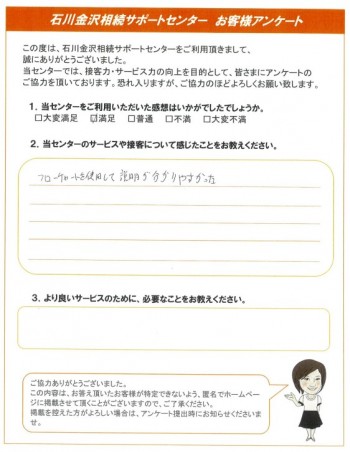 石川金沢相続サポートセンター お客様アンケート
この度は、石川金沢相続サポートセンターをご利用頂きまして、
誠にありがとうございました。
当センターでは、接客力・サービス力の向上を目的として、皆さまにアンケートの
ご協力を頂いております。恐れ入りますが、ご協力のほどよろしくお願い致します。
1. 当センターをご利用いただいた感想はいかがでしたでしょうか。
□大変満足 ☑満足 □普通 □不満 □大変不満
2. 当センターのサービスや接客について感じたことをお教えください。
フローチャートを使用して説明が分かりやすかった
3. より良いサービスのために、必要なことをお教えください。
ご協力ありがとうございました。
この内容は、お答え頂いたお客様が特定できないよう、匿名でホームペー
ジに掲載させて頂くことがございますので、ご了承ください。
掲載を控えた方がよろしい場合は、アンケート提出時にお知らせくださいま
せ。